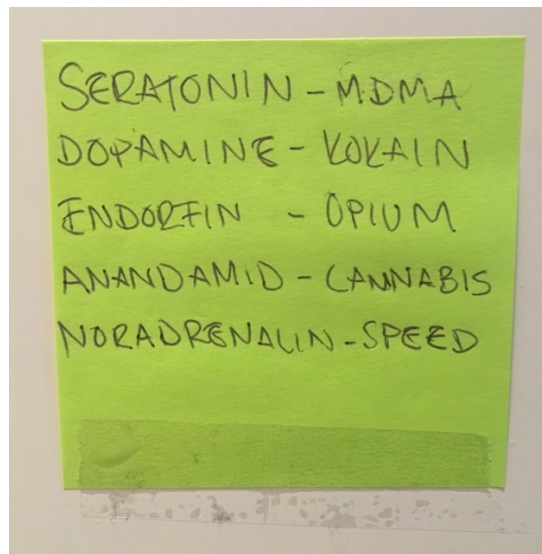 SERATONIN - MDMA
DOPAMINE - KOKAIN
ENDORFIN - OPIUM
ANANDAMID - CANNABIS
NORADRENALIN - SPEED